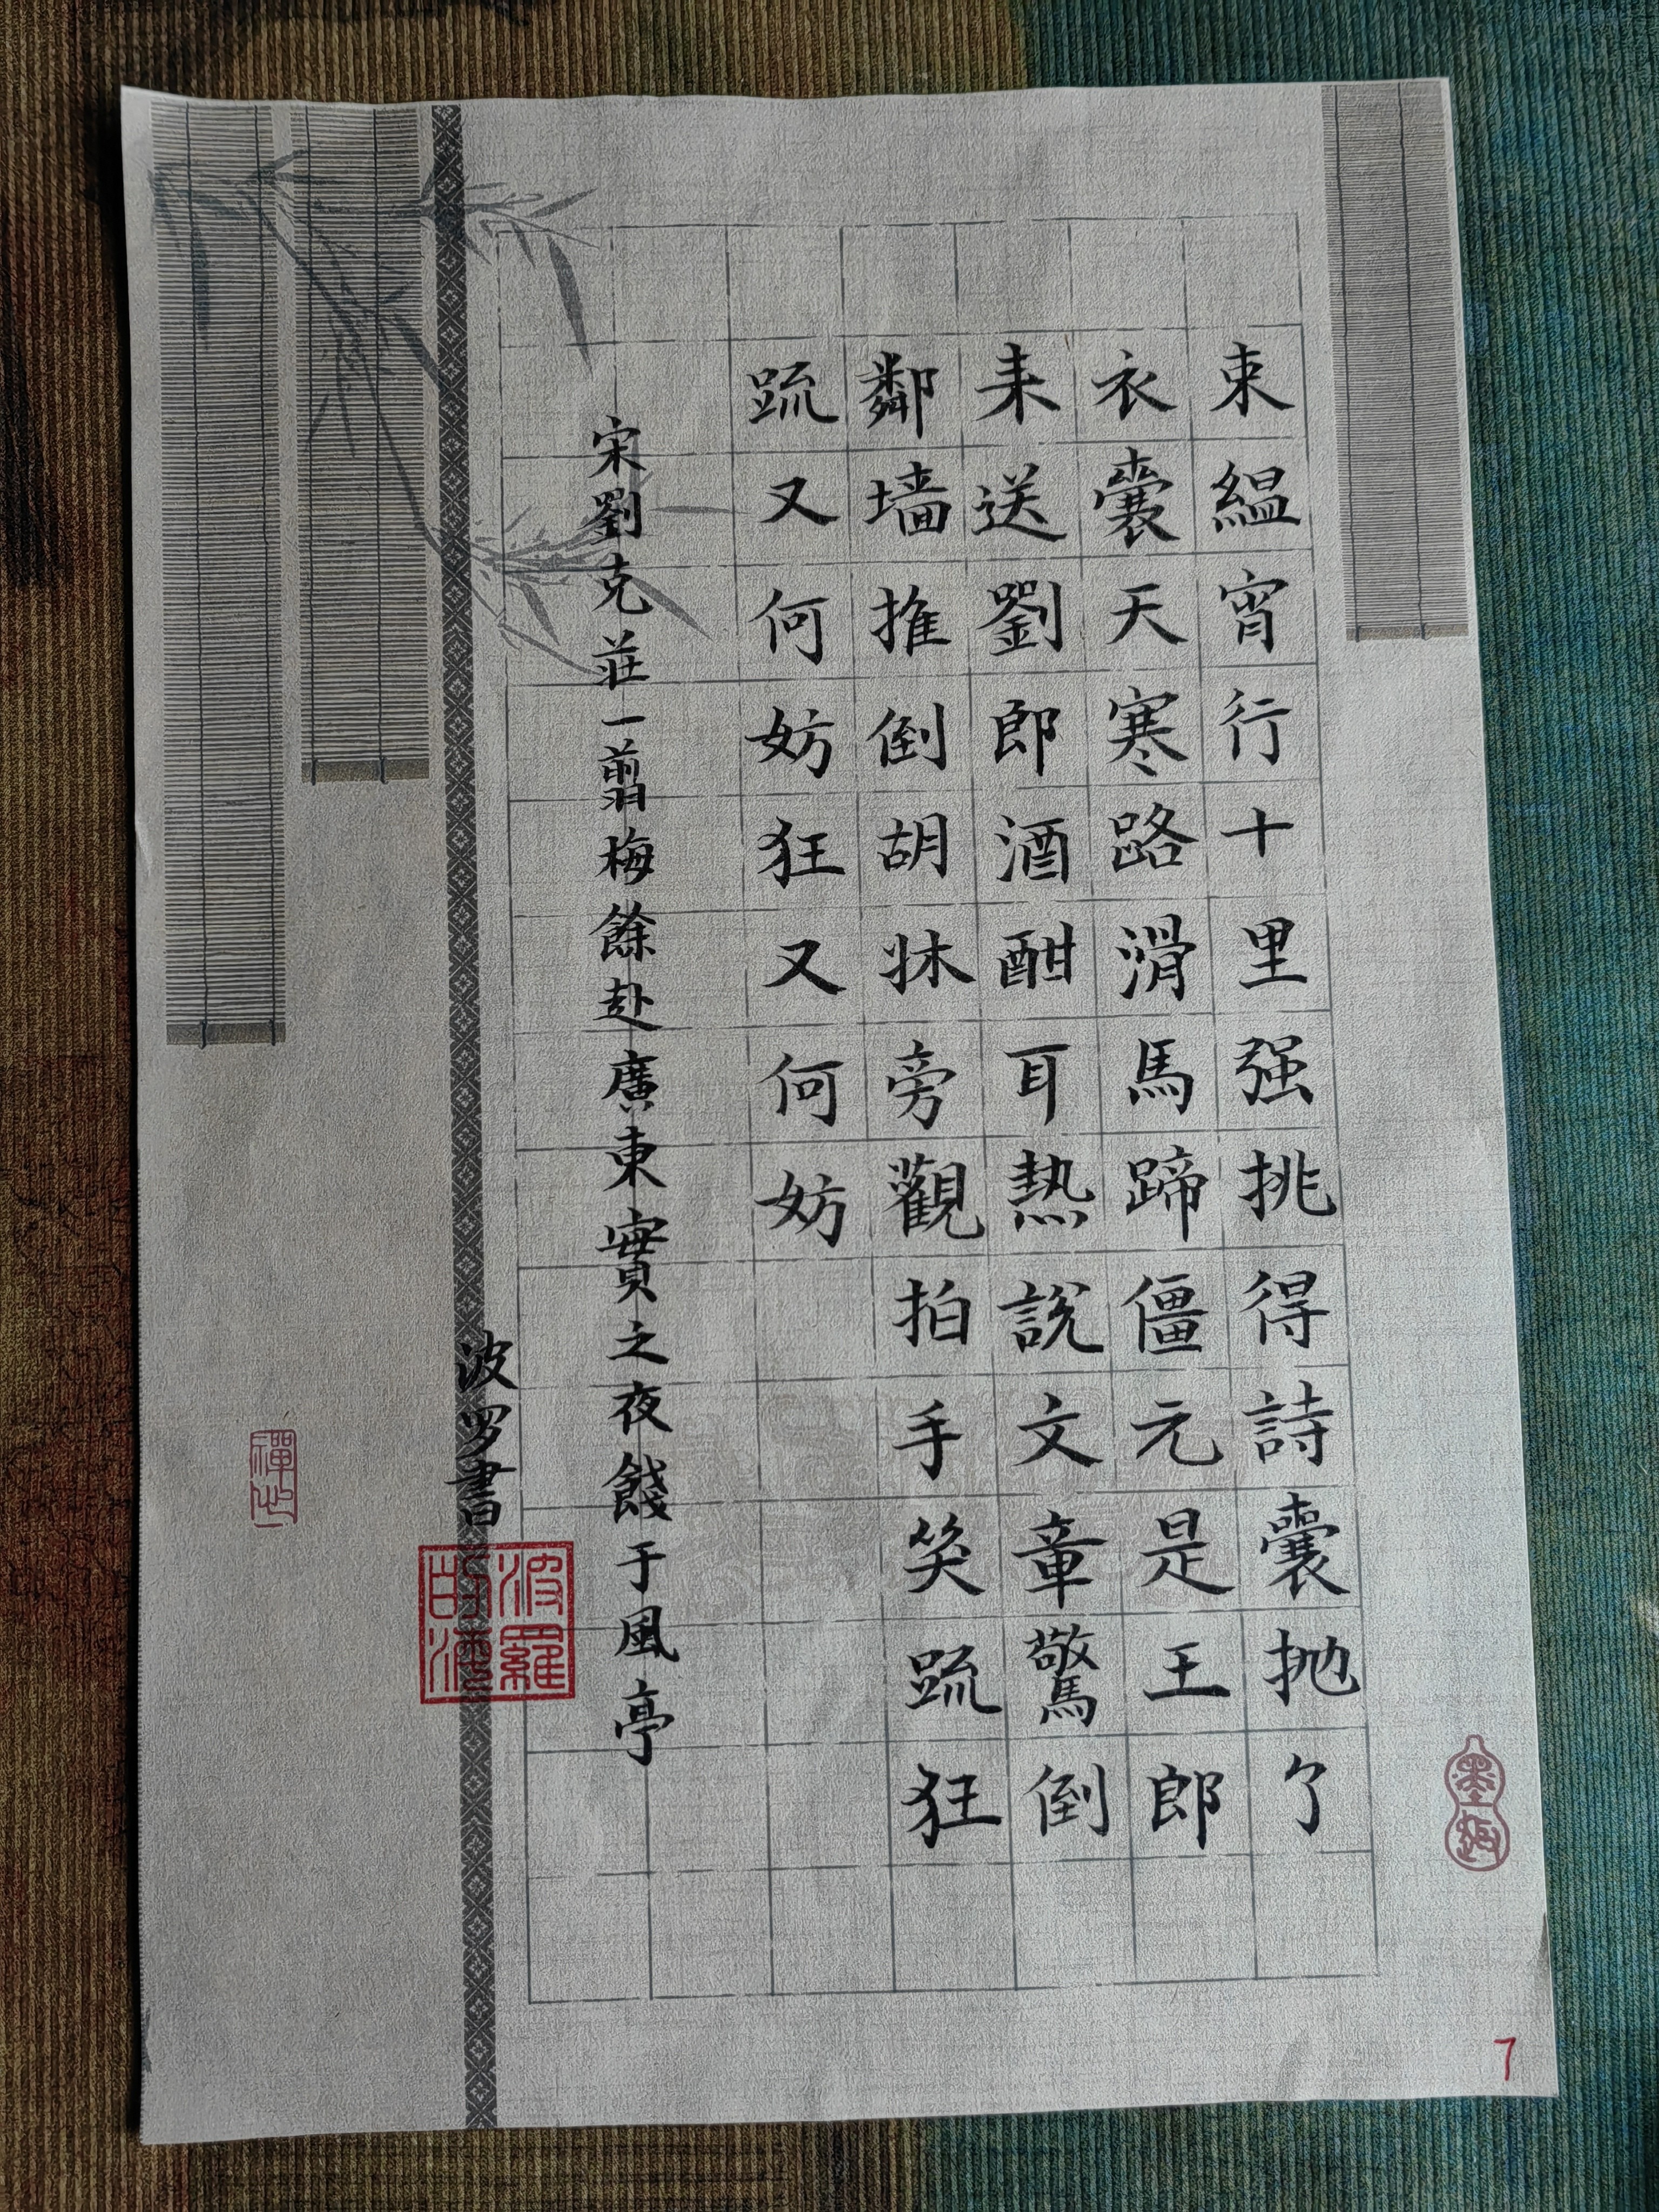 束緼宵行十里强挑得詩囊抛了
衣囊天寒路滑馬蹄僵元是王郎
来送劉郎酒酣耳熱說文章驚倒
鄰墙推倒胡牀旁觀拍手笑䟽狂
䟽又何妨狂又何妨
宋劉克莊一翦梅餘赴廣東實之夜餞于風亭
波罗書
波羅
墨趣
7